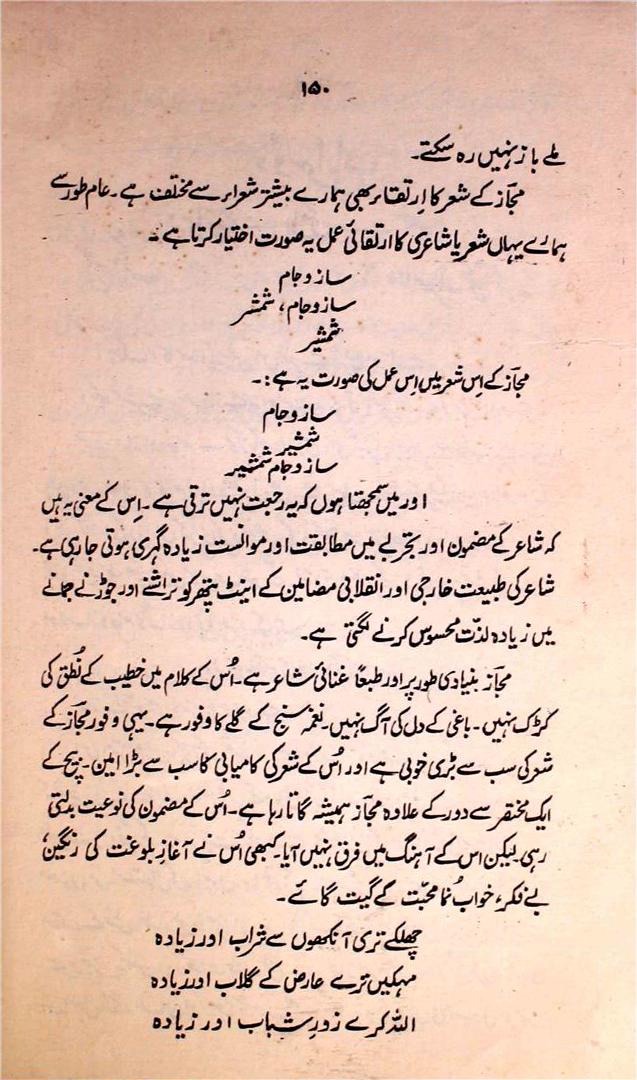 ۱۵۰
ملے باز نہیں رہ سکتے۔
مجاز کے شعر کا اِرتقاء بھی ہمارے بیشتر شعراء سے مختلف ہے۔ عام طور سے
ہمارے یہاں شعر یا شاعری کا ارتقائی عمل یہ صورت اختیار کرتا ہے۔
ساز و جام
ساز و جام، شمشر
شمشیر
مجاز کے اس شعر میں اِس عمل کی صورت یہ ہے:۔
ساز و جام
شمشیر
ساز و جام شمشیر
اور میں سمجھتا ہوں کہ یہ رجعت نہیں ترقی ہے۔ اِس کے معنی یہ ہیں
کہ شاعر کے مضمون اور تجربے میں مطابقت اور موانست زیادہ گہری ہوتی جا رہی ہے۔
شاعر کی طبیعت خارجی اور انقلابی مضامین کے اینٹ پتھر کو تراشنے اور جوڑنے جمانے
میں زیادہ لذّت محسوس کرنے لگتی ہے۔
مجاز بنیادی طور پر اور طبعاً غنائی شاعر ہے۔ اُس کے کلام میں خطیب کے نُطق کی
کڑک نہیں۔ باغی کے دل کی آگ نہیں۔ نغمہ سنج کے گلے کا وفور ہے۔ یہی وفور مجاز کے
شعر کی سب سے بڑی خوبی ہے اور اُس کے شعر کی کامیابی کا سب سے بڑا امین۔ بیچ کے
ایک مختصر سے دور کے علاوہ مجاز ہمیشہ گاتا رہا ہے۔ اُس کے مضمون کی نوعیت بدلتی
رہی لیکن اس کے آہنگ میں فرق نہیں آیا۔ کبھی اُس نے آغازِ بلوغت کی رنگین،
بے فکر، خواب نُما محبّت کے گیت گائے۔
چھلکے تری آنکھوں سے شراب اور زیادہ
مہکیں ترے عارض کے گلاب اور زیادہ
اللہ کرے زورِ شباب اور زیادہ